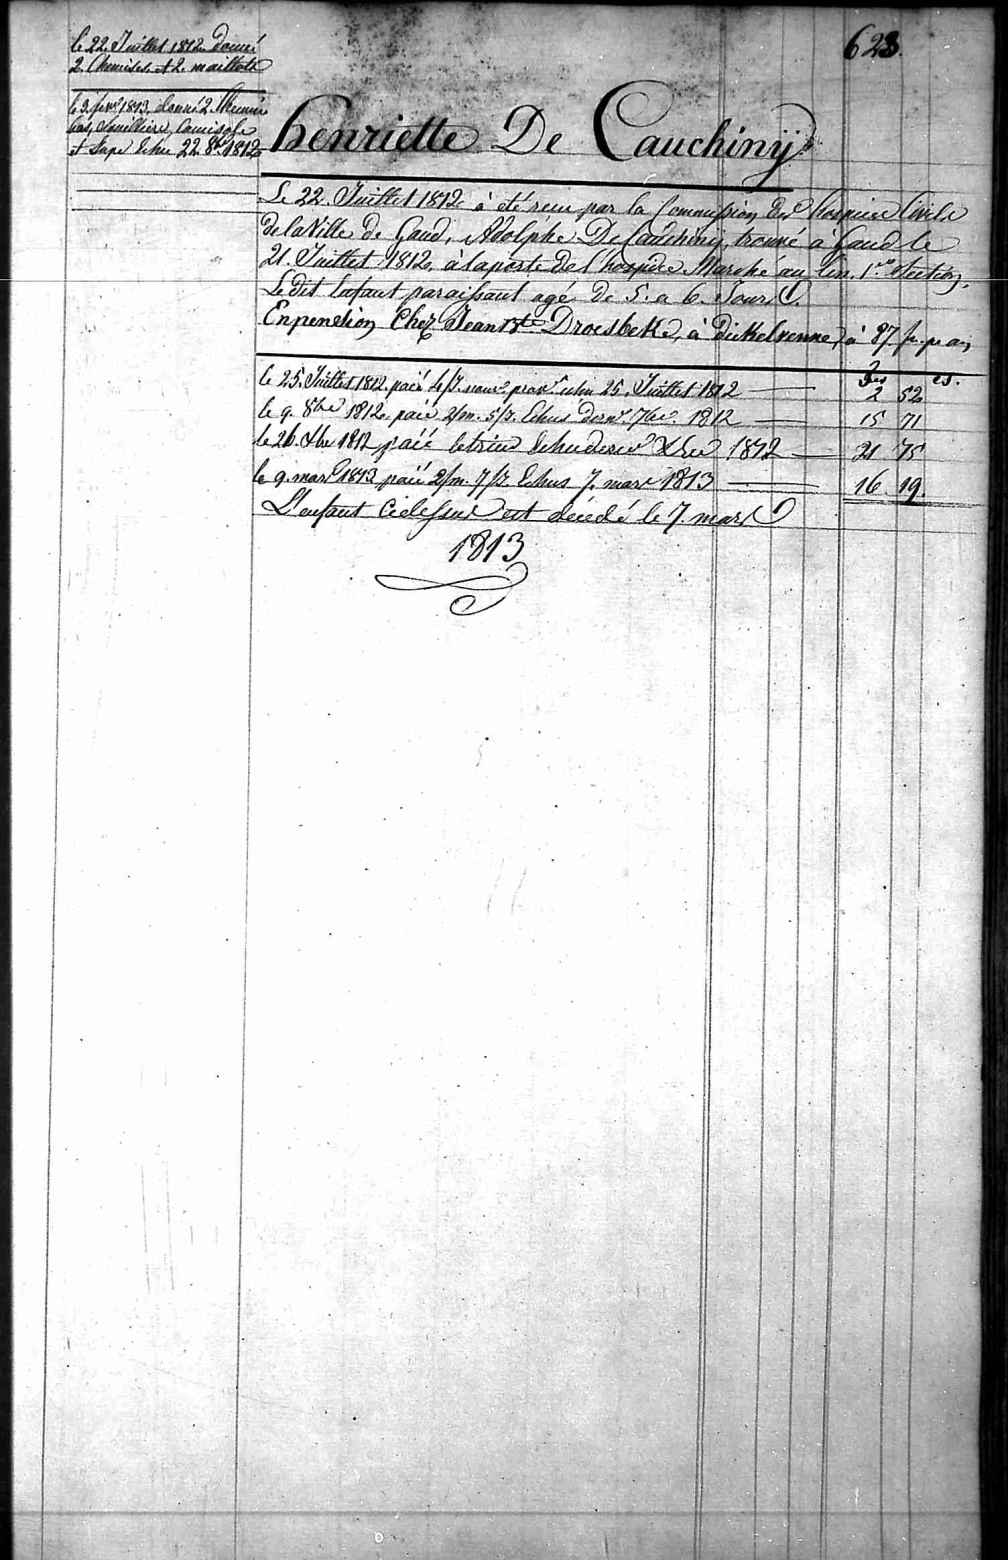 623.
le 22. Juillet 1812. donné
2. Chemises et 2. maillots
le 9. janr 1813, donné 2. Chemises
bas, camisole
et Jupe Echu 22. 8bre 1812
henriette De Cauchinÿ
Le 22. Juillet 1812. à été reçu par la Commission des hospices Civils
de la Ville de Gand, Adolphe De Cauchinij, trouvé à Gand le
21. Juillet 1812, à la porte de l'hospice Marché au lin, 1re Section,
Le dit Enfant paraissant agé De 5. a 6. Jours.
En pension Chez Jean Bte Droesbeke, à dickelvenne, à 87. fr. pr an
frs cs.
le 25. Juillet 1812. paié 25. Juillet 1812 2 52
le 9. 8bre 1812. paié 2/m. 5/j. Echus dernr 7bre 1812 15 71
le 26. Xbre 1812 paié letrim Echu Xbre 1812 21 75
le 9. mars 1813 paié 2/m. 7/j. Echus 7. mars 1813 16 19.
L'enfant Cidessus est décédé le 7. mars
1813